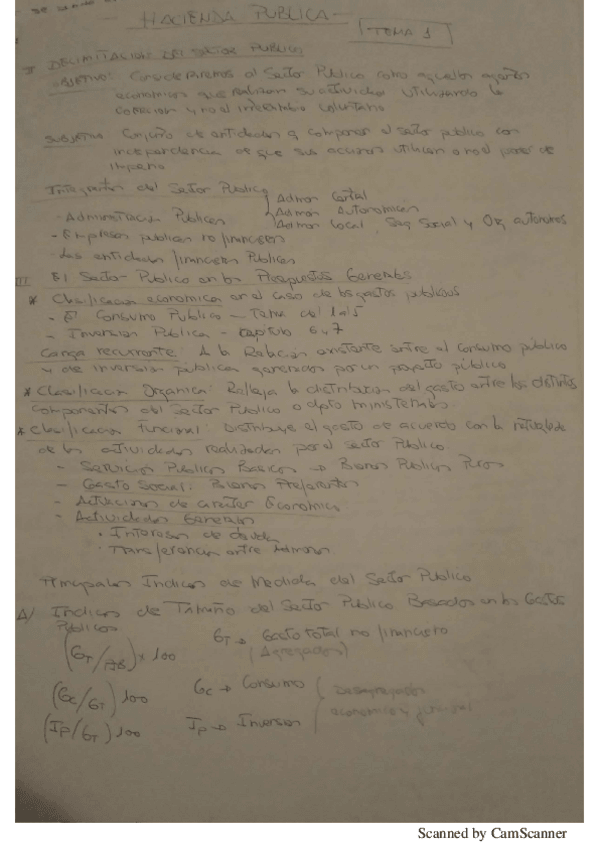 HACIENDA PUBLICA -
TEMA 1
I DELIMITACION DEL SECTOR PUBLICO
OBJETIVO: Consideraremos al Sector Publico como aquellos agentes
economicos que realizan su actividad utilizando la
coaccion y no el intercambio voluntario
SUBJETIVO: Conjunto de entidades q componen el sector publico con
independencia de que sus acciones utilicen o no el poder de
imperio
Integrantes del Sector Publico
Admon Central
- Administracion Publicas
Admon Autonomica
Admon Local, Seg Social y Org autonomos
- Empresas publicas no financieras
- Las entidades financieras Publicas
III El Sector Publico en los Presupuestos Generales
* Clasificacion economica en el caso de los gastos publicos
- El Consumo Publico - Tema del 1 al 5
- Inversion Publica - capitulo 6 y 7
Carga recurrente: A la Relacion existente entre el consumo publico
y de inversion publica generados por un proyecto público
* Clasificacion Organica: Refleja la distribucion del gasto entre los distintos
componentes del Sector Publico o dpto ministeriales
* Clasificacion Funcional: Distribuye el gasto de acuerdo con la naturaleza
de las actividades realizadas por el sector Publico
- Servicios Publicos Basicos → Bienes Publicos Puros
- Gasto Social: Bienes Preferentes
- Actuaciones de caracter Económico
- Actividades Generales
• Intereses de deuda
• Transferencias entre Admones
Principales Indices de Medida del Sector Publico
A/ Indices de Tamaño del Sector Publico Basados en los Gastos
Publicos
(GT/PIB) × 100 GT → Gasto total no financiero
(Agregados)
(Gc/GT) 100 Gc → Consumo
Desagregados
economica y funcional
(Ip/GT) 100 Ip → Inversion
Scanned by CamScanner